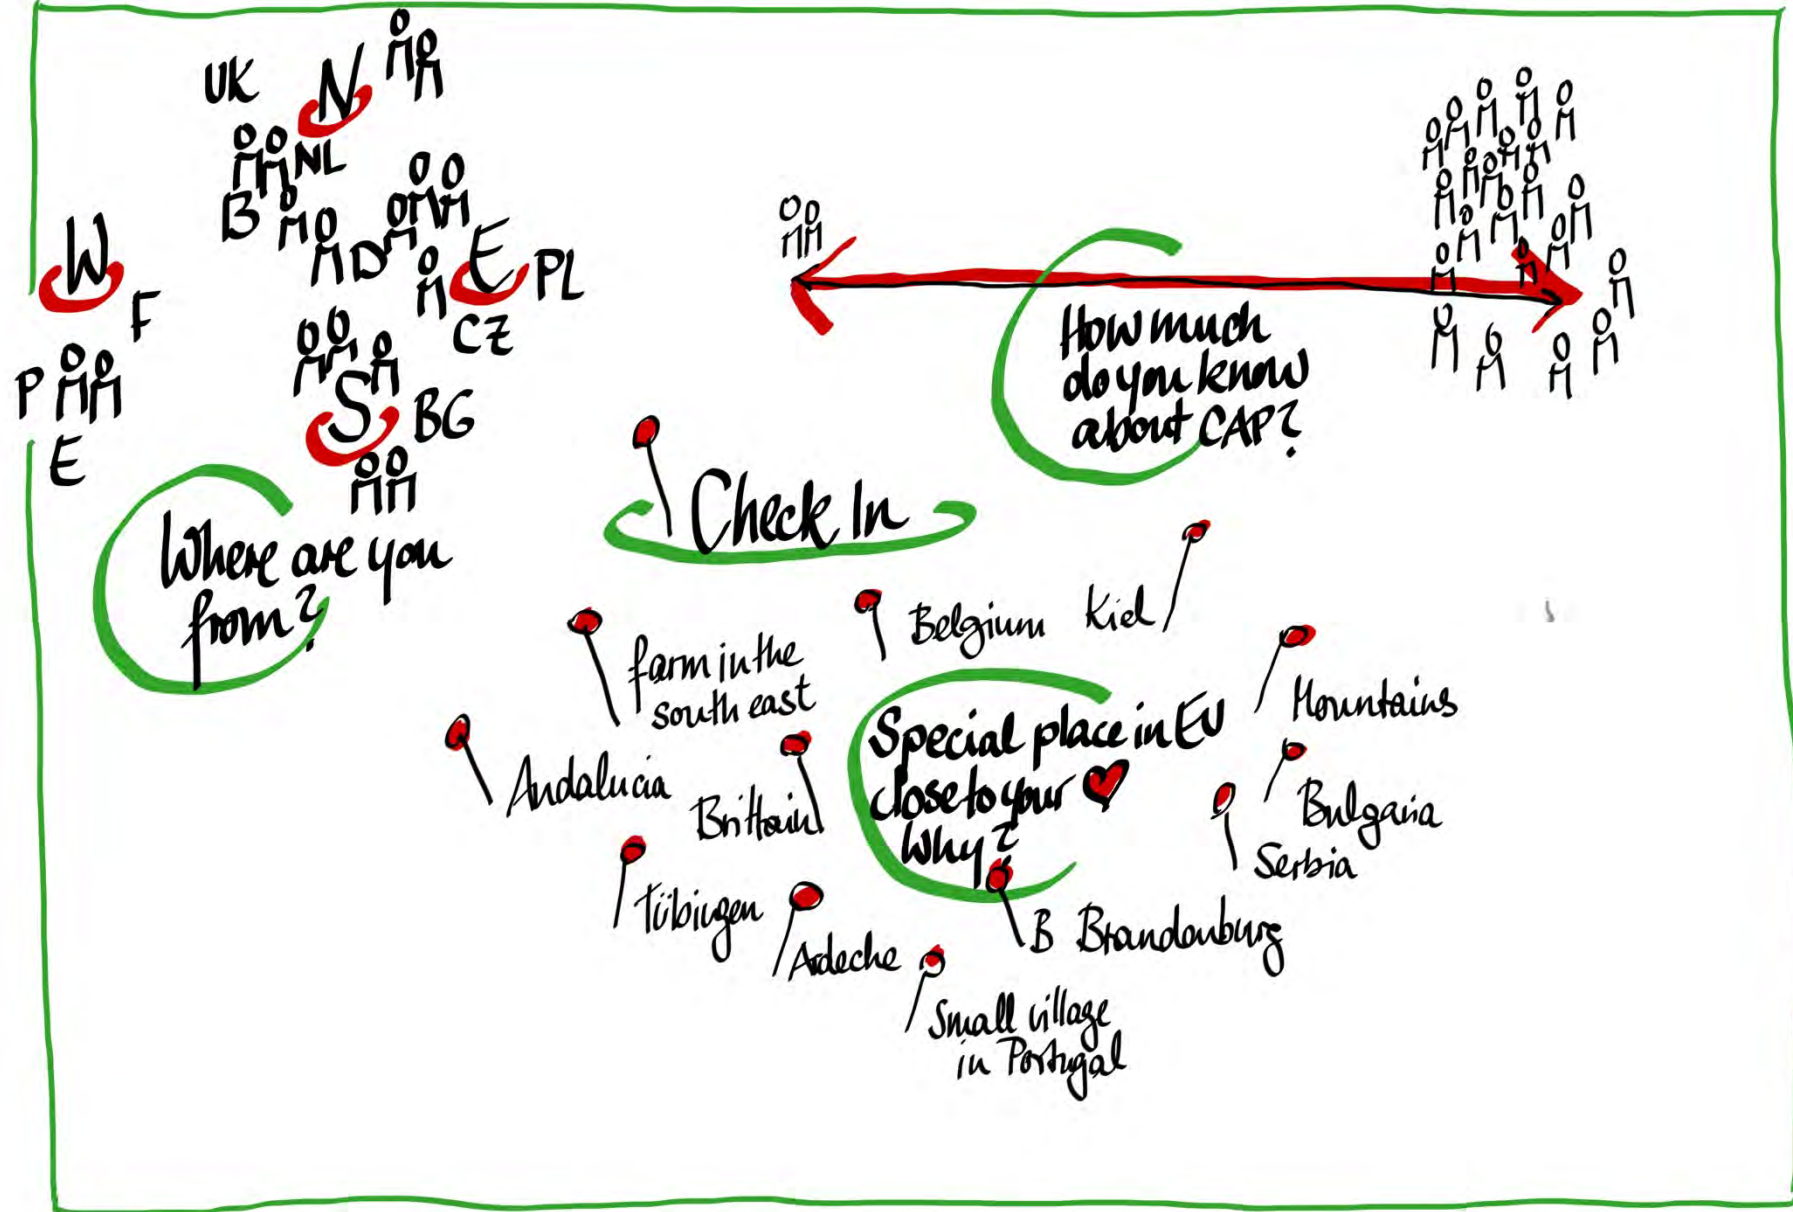 UK
N
NL
B
D
W
F
E
PL
CZ
P
E
S
BG
Where are you
from?
How much
do you know
about CAP?
Check In
farm in the
south east
Belgium
Kiel
Andalucia
Brittain
Special place in EU
close to your
Why?
Mountains
Bulgaria
Serbia
Tübingen
Adeche
B Brandenburg
Small village
in Portugal